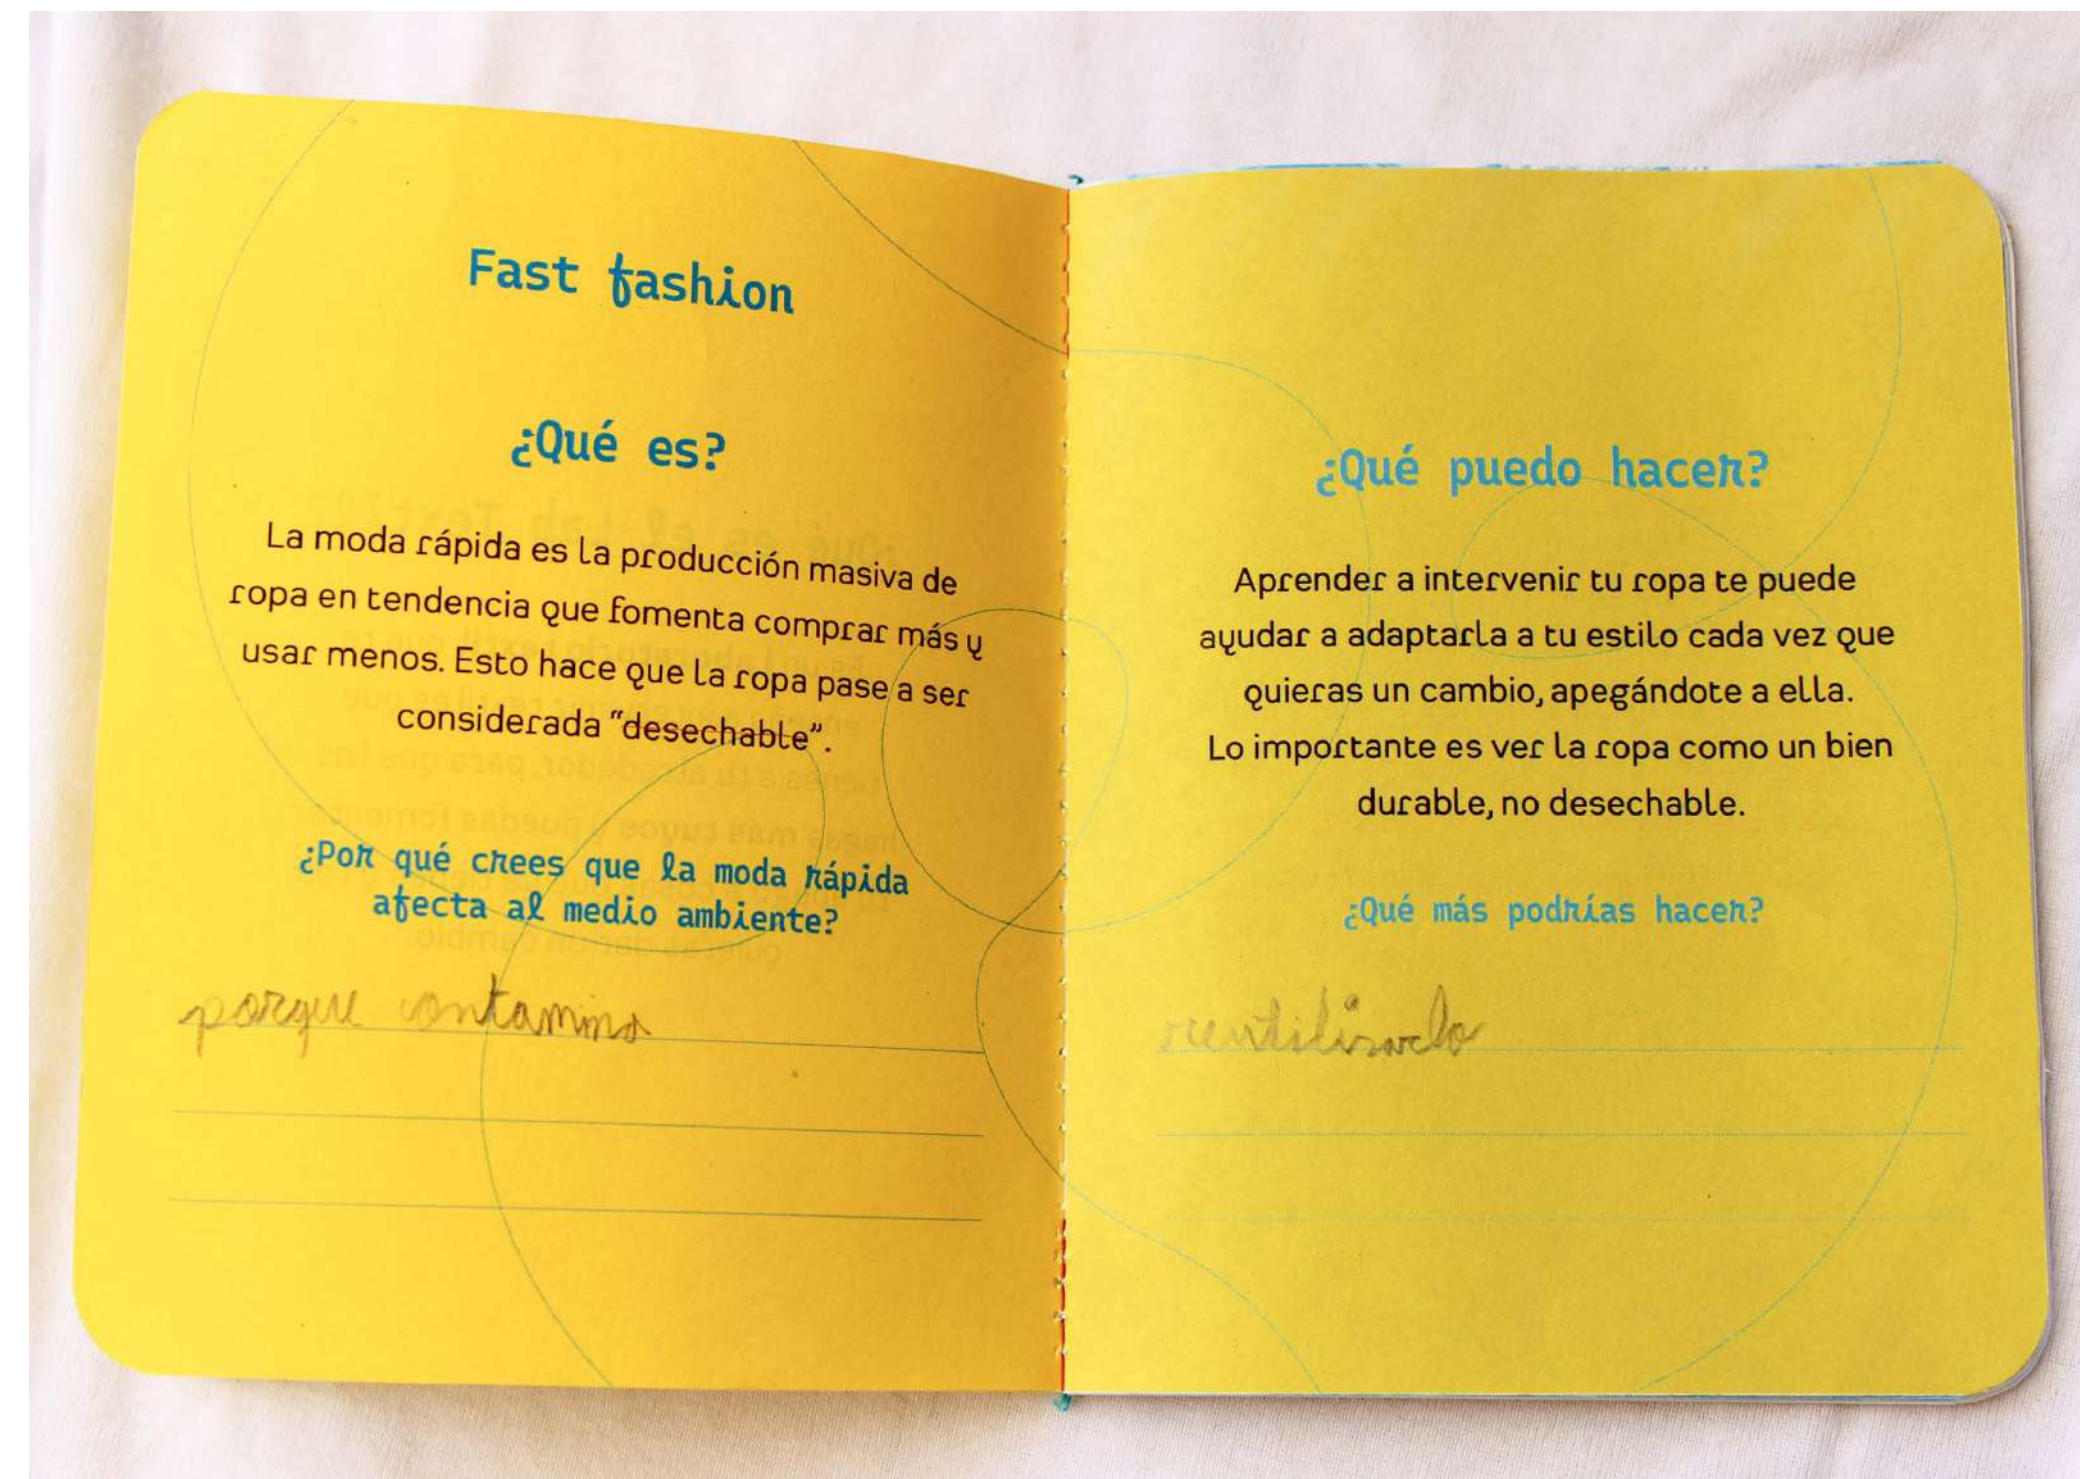 Fast fashion
¿Qué es?
La moda rápida es la producción masiva de
ropa en tendencia que fomenta comprar más y
usar menos. Esto hace que la ropa pase a ser
considerada “desechable”.
¿Por qué crees que la moda rápida
afecta al medio ambiente?
porque contamina
¿Qué puedo hacer?
Aprender a intervenir tu ropa te puede
ayudar a adaptarla a tu estilo cada vez que
quieras un cambio, apegándote a ella.
Lo importante es ver la ropa como un bien
durable, no desechable.
¿Qué más podrías hacer?